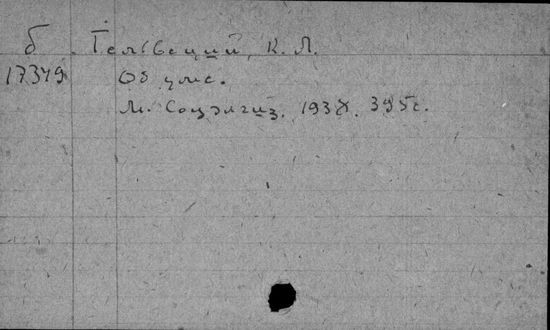 б Гельвеций, К. А.
17349 Об уме.
М. Соцэкгиз, 1938. 395 с.